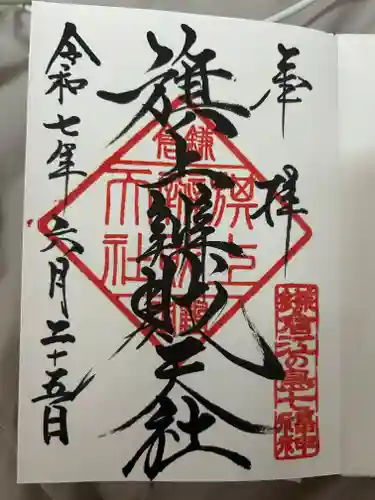 奉拝
旗上辨財天社
令和七年六月二十五日
鎌倉
旗上
天社
鎌倉江の島七福神